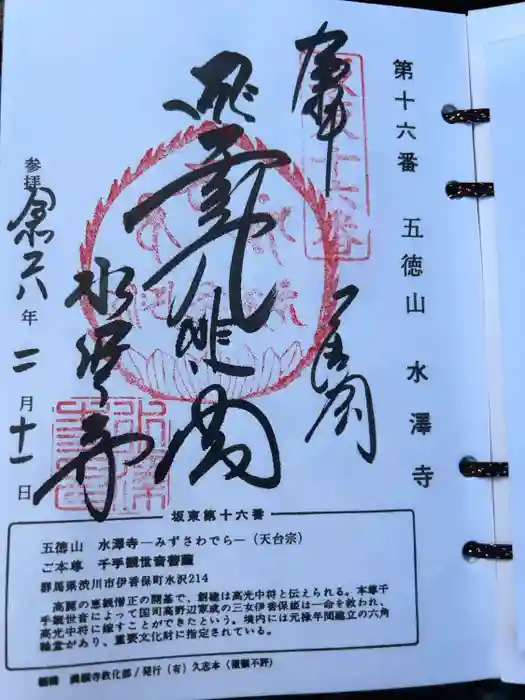 第十六番　五徳山　水澤寺
奉
参拝
令六年二月十一日
水澤寺
坂東第十六番
五徳山　水澤寺―みずさわでら―（天台宗）
ご本尊　千手観世音菩薩
群馬県渋川市伊香保町水沢214
高麗の恵観僧正の開基で、創建は高光中将と伝えられる。本尊千
手観世音によって国司高野辺家成の三女伊香保姫は一命を救われ、
高光中将に嫁すことができたという。境内には元禄年間建立の六角
輪堂があり、重要文化財に指定されている。
編輯　満願寺教化部／発行（有）久志本（複製不許）